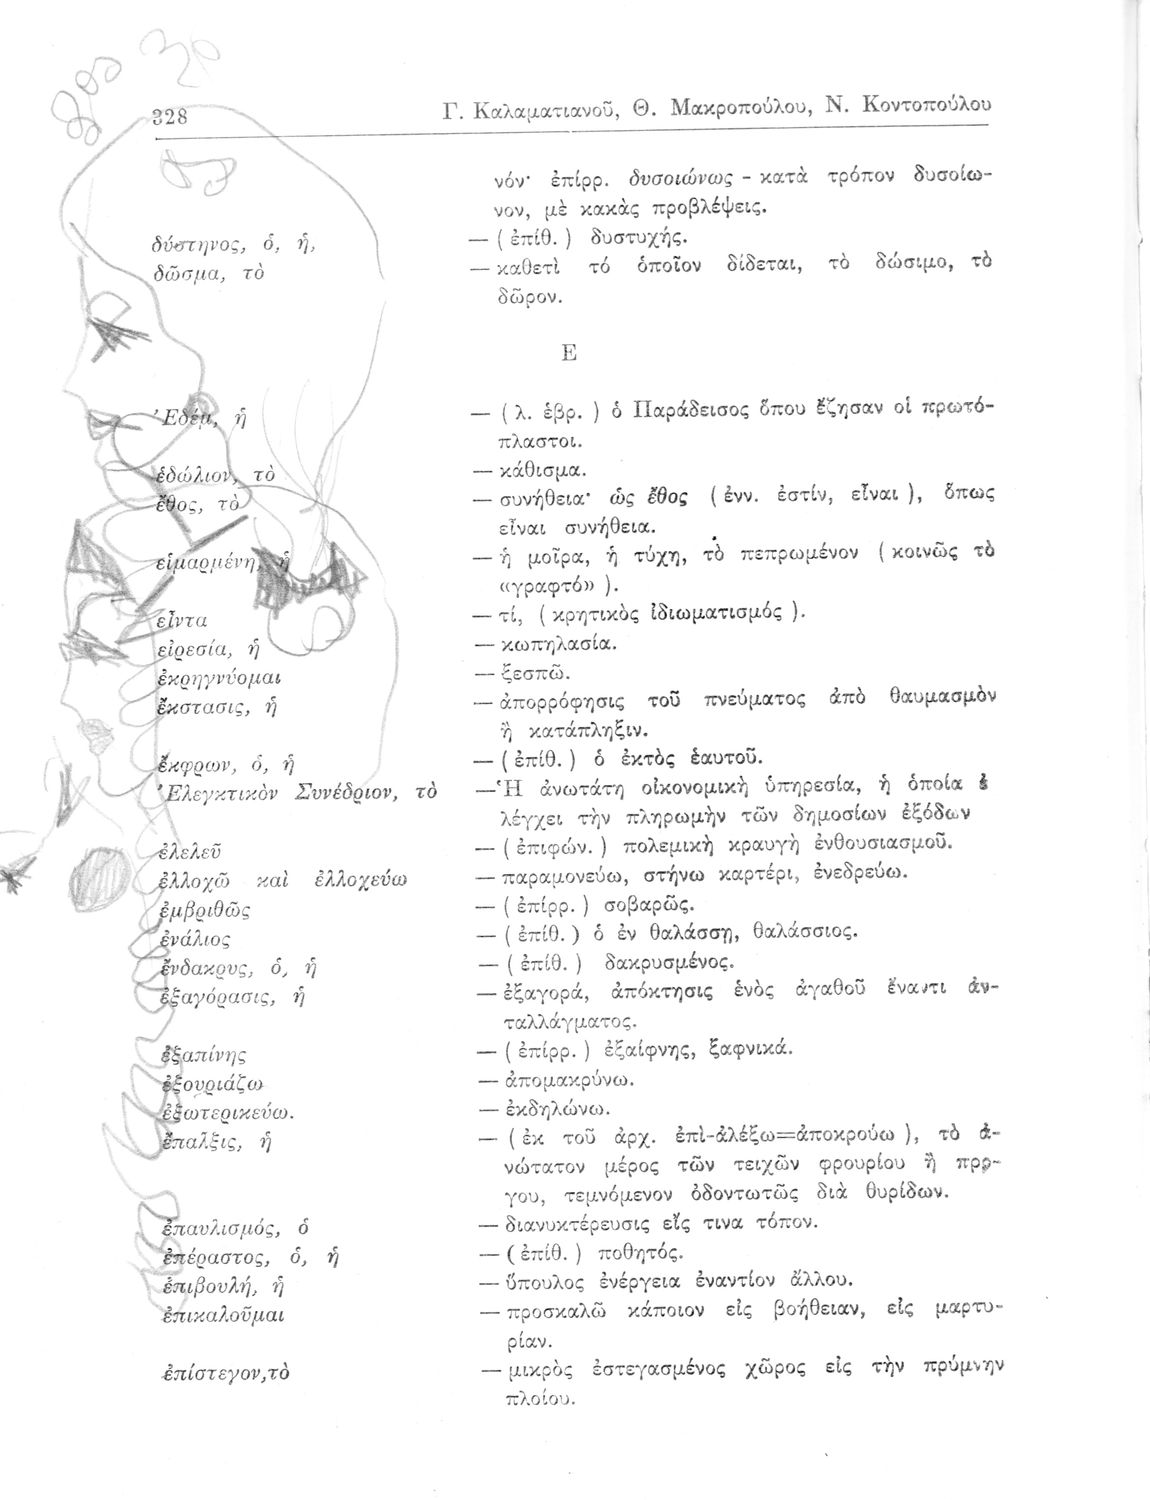 328
Γ. Καλαματιανοῦ, Θ. Μακροπούλου, Ν. Κοντοπούλου
νόν· ἐπίρρ. δυσοιώνως - κατὰ τρόπον δυσοίω-
νον, μὲ κακὰς προβλέψεις.
δύστηνος, ὁ, ἡ, — ( ἐπίθ. ) δυστυχής.
δῶσμα, τὸ — καθετὶ τό ὁποῖον δίδεται, τὸ δώσιμο, τὸ
δῶρον.
Ε
Ἐδέμ, ἡ — ( λ. ἑβρ. ) ὁ Παράδεισος ὅπου ἔζησαν οἱ πρωτό-
πλαστοι.
ἑδώλιον, τὸ — κάθισμα.
ἔθος, τὸ — συνήθεια· ὡς ἔθος ( ἐνν. ἐστίν, εἶναι ), ὅπως
εἶναι συνήθεια.
εἱμαρμένη, ἡ — ἡ μοῖρα, ἡ τύχη, τὸ πεπρωμένον ( κοινῶς τὸ
«γραφτό» ).
εἶντα — τί, ( κρητικὸς ἰδιωματισμός ).
εἰρεσία, ἡ — κωπηλασία.
ἐκρηγνύομαι — ξεσπῶ.
ἔκστασις, ἡ — ἀπορρόφησις τοῦ πνεύματος ἀπὸ θαυμασμὸν
ἢ κατάπληξιν.
ἔκφρων, ὁ, ἡ — ( ἐπίθ. ) ὁ ἐκτὸς ἑαυτοῦ.
Ἐλεγκτικὸν Συνέδριον, τὸ —Ἡ ἀνωτάτη οἰκονομικὴ ὑπηρεσία, ἡ ὁποία ἐ
λέγχει τὴν πληρωμὴν τῶν δημοσίων ἐξόδων
ἐλελεῦ — ( ἐπιφών. ) πολεμικὴ κραυγὴ ἐνθουσιασμοῦ.
ἐλλοχῶ καὶ ἐλλοχεύω — παραμονεύω, στήνω καρτέρι, ἐνεδρεύω.
ἐμβριθῶς — ( ἐπίρρ. ) σοβαρῶς.
ἐνάλιος — ( ἐπίθ. ) ὁ ἐν θαλάσσῃ, θαλάσσιος.
ἔνδακρυς, ὁ, ἡ — ( ἐπίθ. ) δακρυσμένος.
ἐξαγόρασις, ἡ — ἐξαγορά, ἀπόκτησις ἑνὸς ἀγαθοῦ ἔναντι ἀν-
ταλλάγματος.
ἐξαπίνης — ( ἐπίρρ. ) ἐξαίφνης, ξαφνικά.
ἐξουριάζω — ἀπομακρύνω.
ἐξωτερικεύω. — ἐκδηλώνω.
ἔπαλξις, ἡ — ( ἐκ τοῦ ἀρχ. ἐπὶ-ἀλέξω=ἀποκρούω ), τὸ ἀ-
νώτατον μέρος τῶν τειχῶν φρουρίου ἢ πρρ-
γου, τεμνόμενον ὀδοντωτῶς διὰ θυρίδων.
ἐπαυλισμός, ὁ — διανυκτέρευσις εἴς τινα τόπον.
ἐπέραστος, ὁ, ἡ — ( ἐπίθ. ) ποθητός.
ἐπιβουλή, ἡ — ὕπουλος ἐνέργεια ἐναντίον ἄλλου.
ἐπικαλοῦμαι — προσκαλῶ κάποιον εἰς βοήθειαν, εἰς μαρτυ-
ρίαν.
ἐπίστεγον,τὸ — μικρὸς ἐστεγασμένος χῶρος εἰς τὴν πρύμνην
πλοίου.